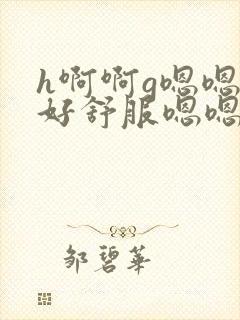 h啊啊g嗯嗯
好舒服嗯嗯
邹碧华